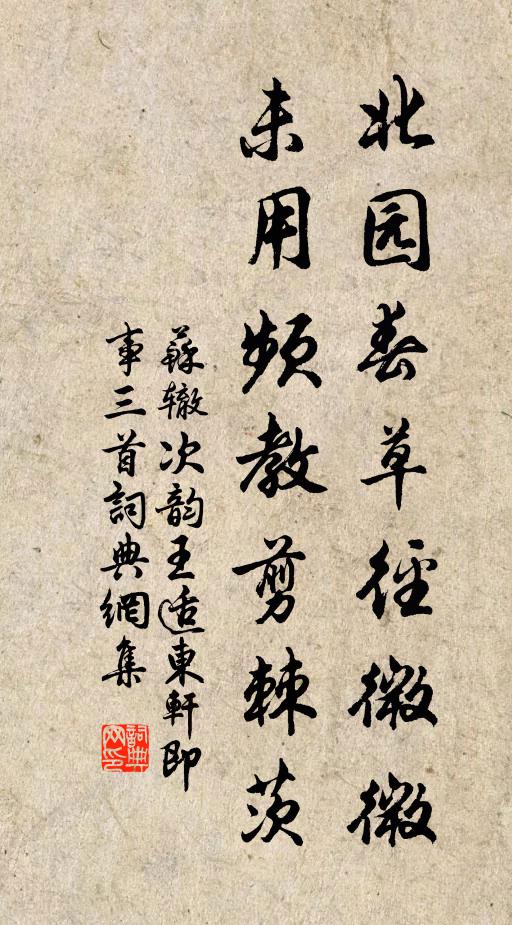 北园春草径微微
未用频教剪棘茨
蘇辙次韵王适東軒即
事三首詞典網集
詞典
网印